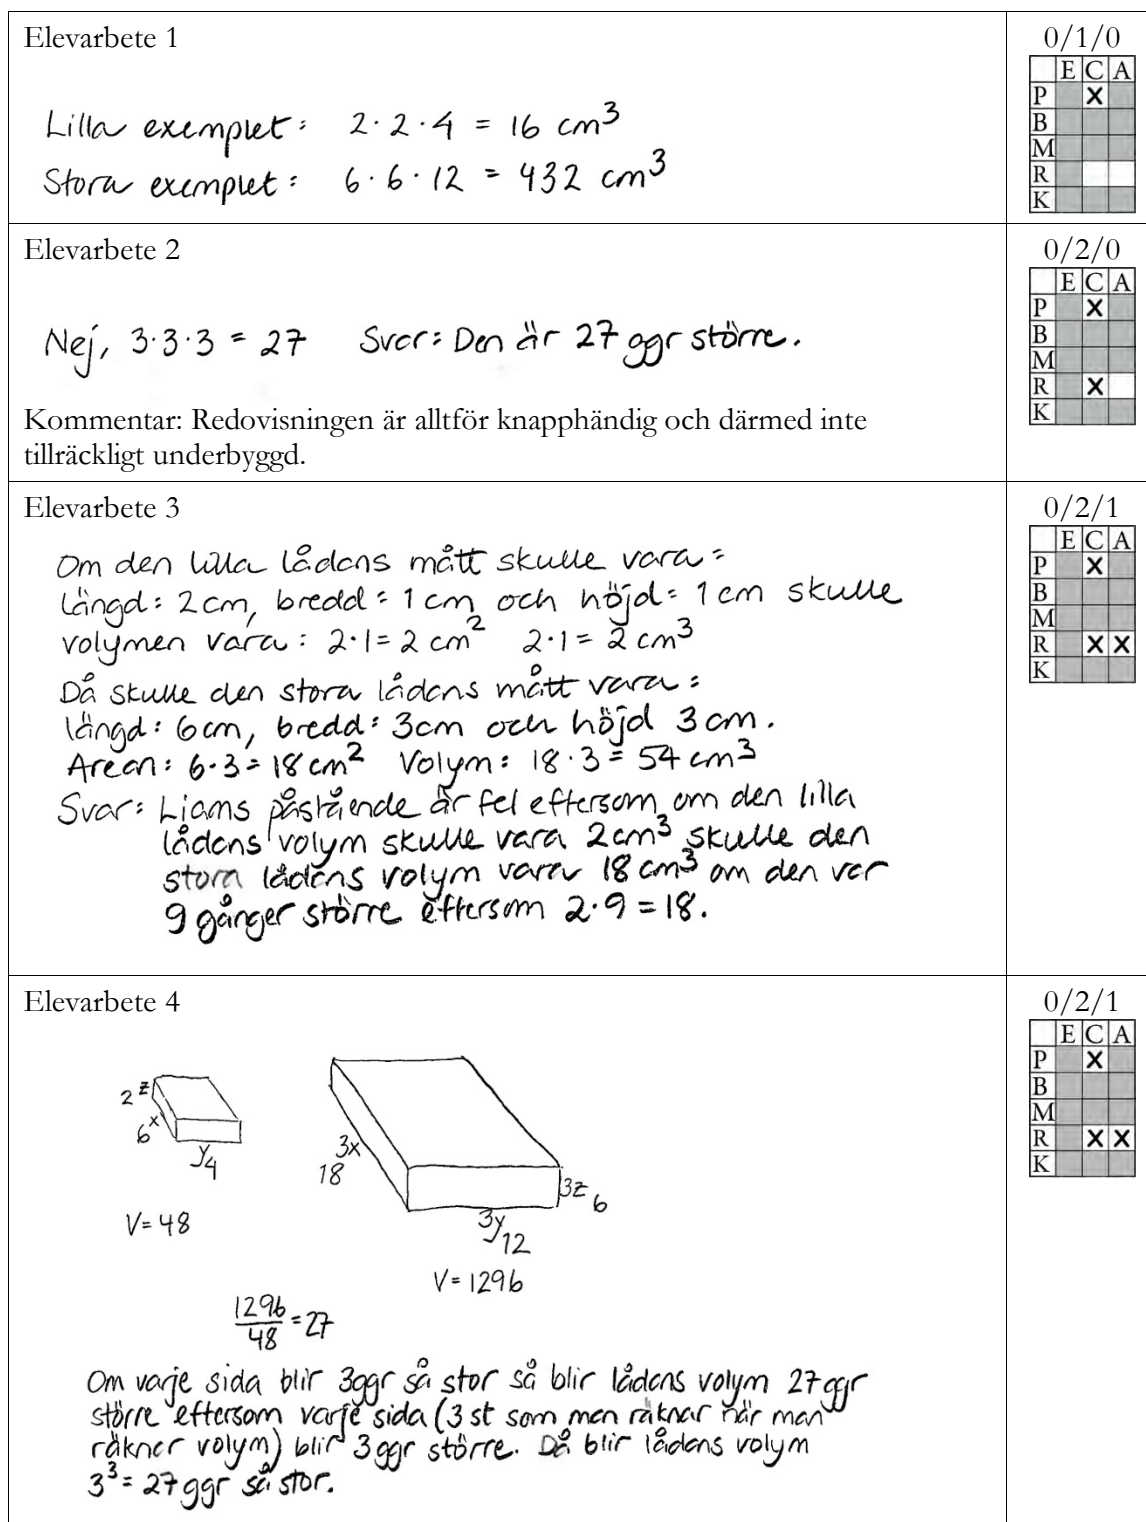 Elevarbete 1
0/1/0
E C A
Lilla exemplet: 2·2·4 = 16 cm³
P X
B
M
Stora exemplet: 6·6·12 = 432 cm³
R
K
Elevarbete 2
0/2/0
E C A
Nej, 3·3·3 = 27 Svar: Den är 27 ggr större.
P X
B
M
R X
K
Kommentar: Redovisningen är alltför knapphändig och därmed inte
tillräckligt underbyggd.
Elevarbete 3
0/2/1
E C A
P X
B
M
R X X
K
Om den lilla lådans mått skulle vara:
Längd: 2cm, bredd: 1 cm och höjd: 1 cm skulle
volymen vara: 2·1 = 2 cm² 2·1 = 2 cm³
Då skulle den stora lådans mått vara:
längd: 6cm, bredd: 3cm och höjd 3 cm.
Arean: 6·3 = 18 cm² Volym: 18·3 = 54 cm³
Svar: Liams påstående är fel eftersom om den lilla
lådans volym skulle vara 2cm³ skulle den
stora lådans volym vara 18 cm³ om den var
9 gånger större eftersom 2·9 = 18.
Elevarbete 4
0/2/1
E C A
P X
B
M
R X X
K
2 z
6 x
y 4
V = 48
3x
18
3z 6
3y 12
V = 1296
1296/48 = 27
Om varje sida blir 3ggr så stor så blir lådans volym 27 ggr
större eftersom varje sida (3 st som man räknar när man
räknar volym) blir 3 ggr större. Då blir lådans volym
3³ = 27 ggr så stor.